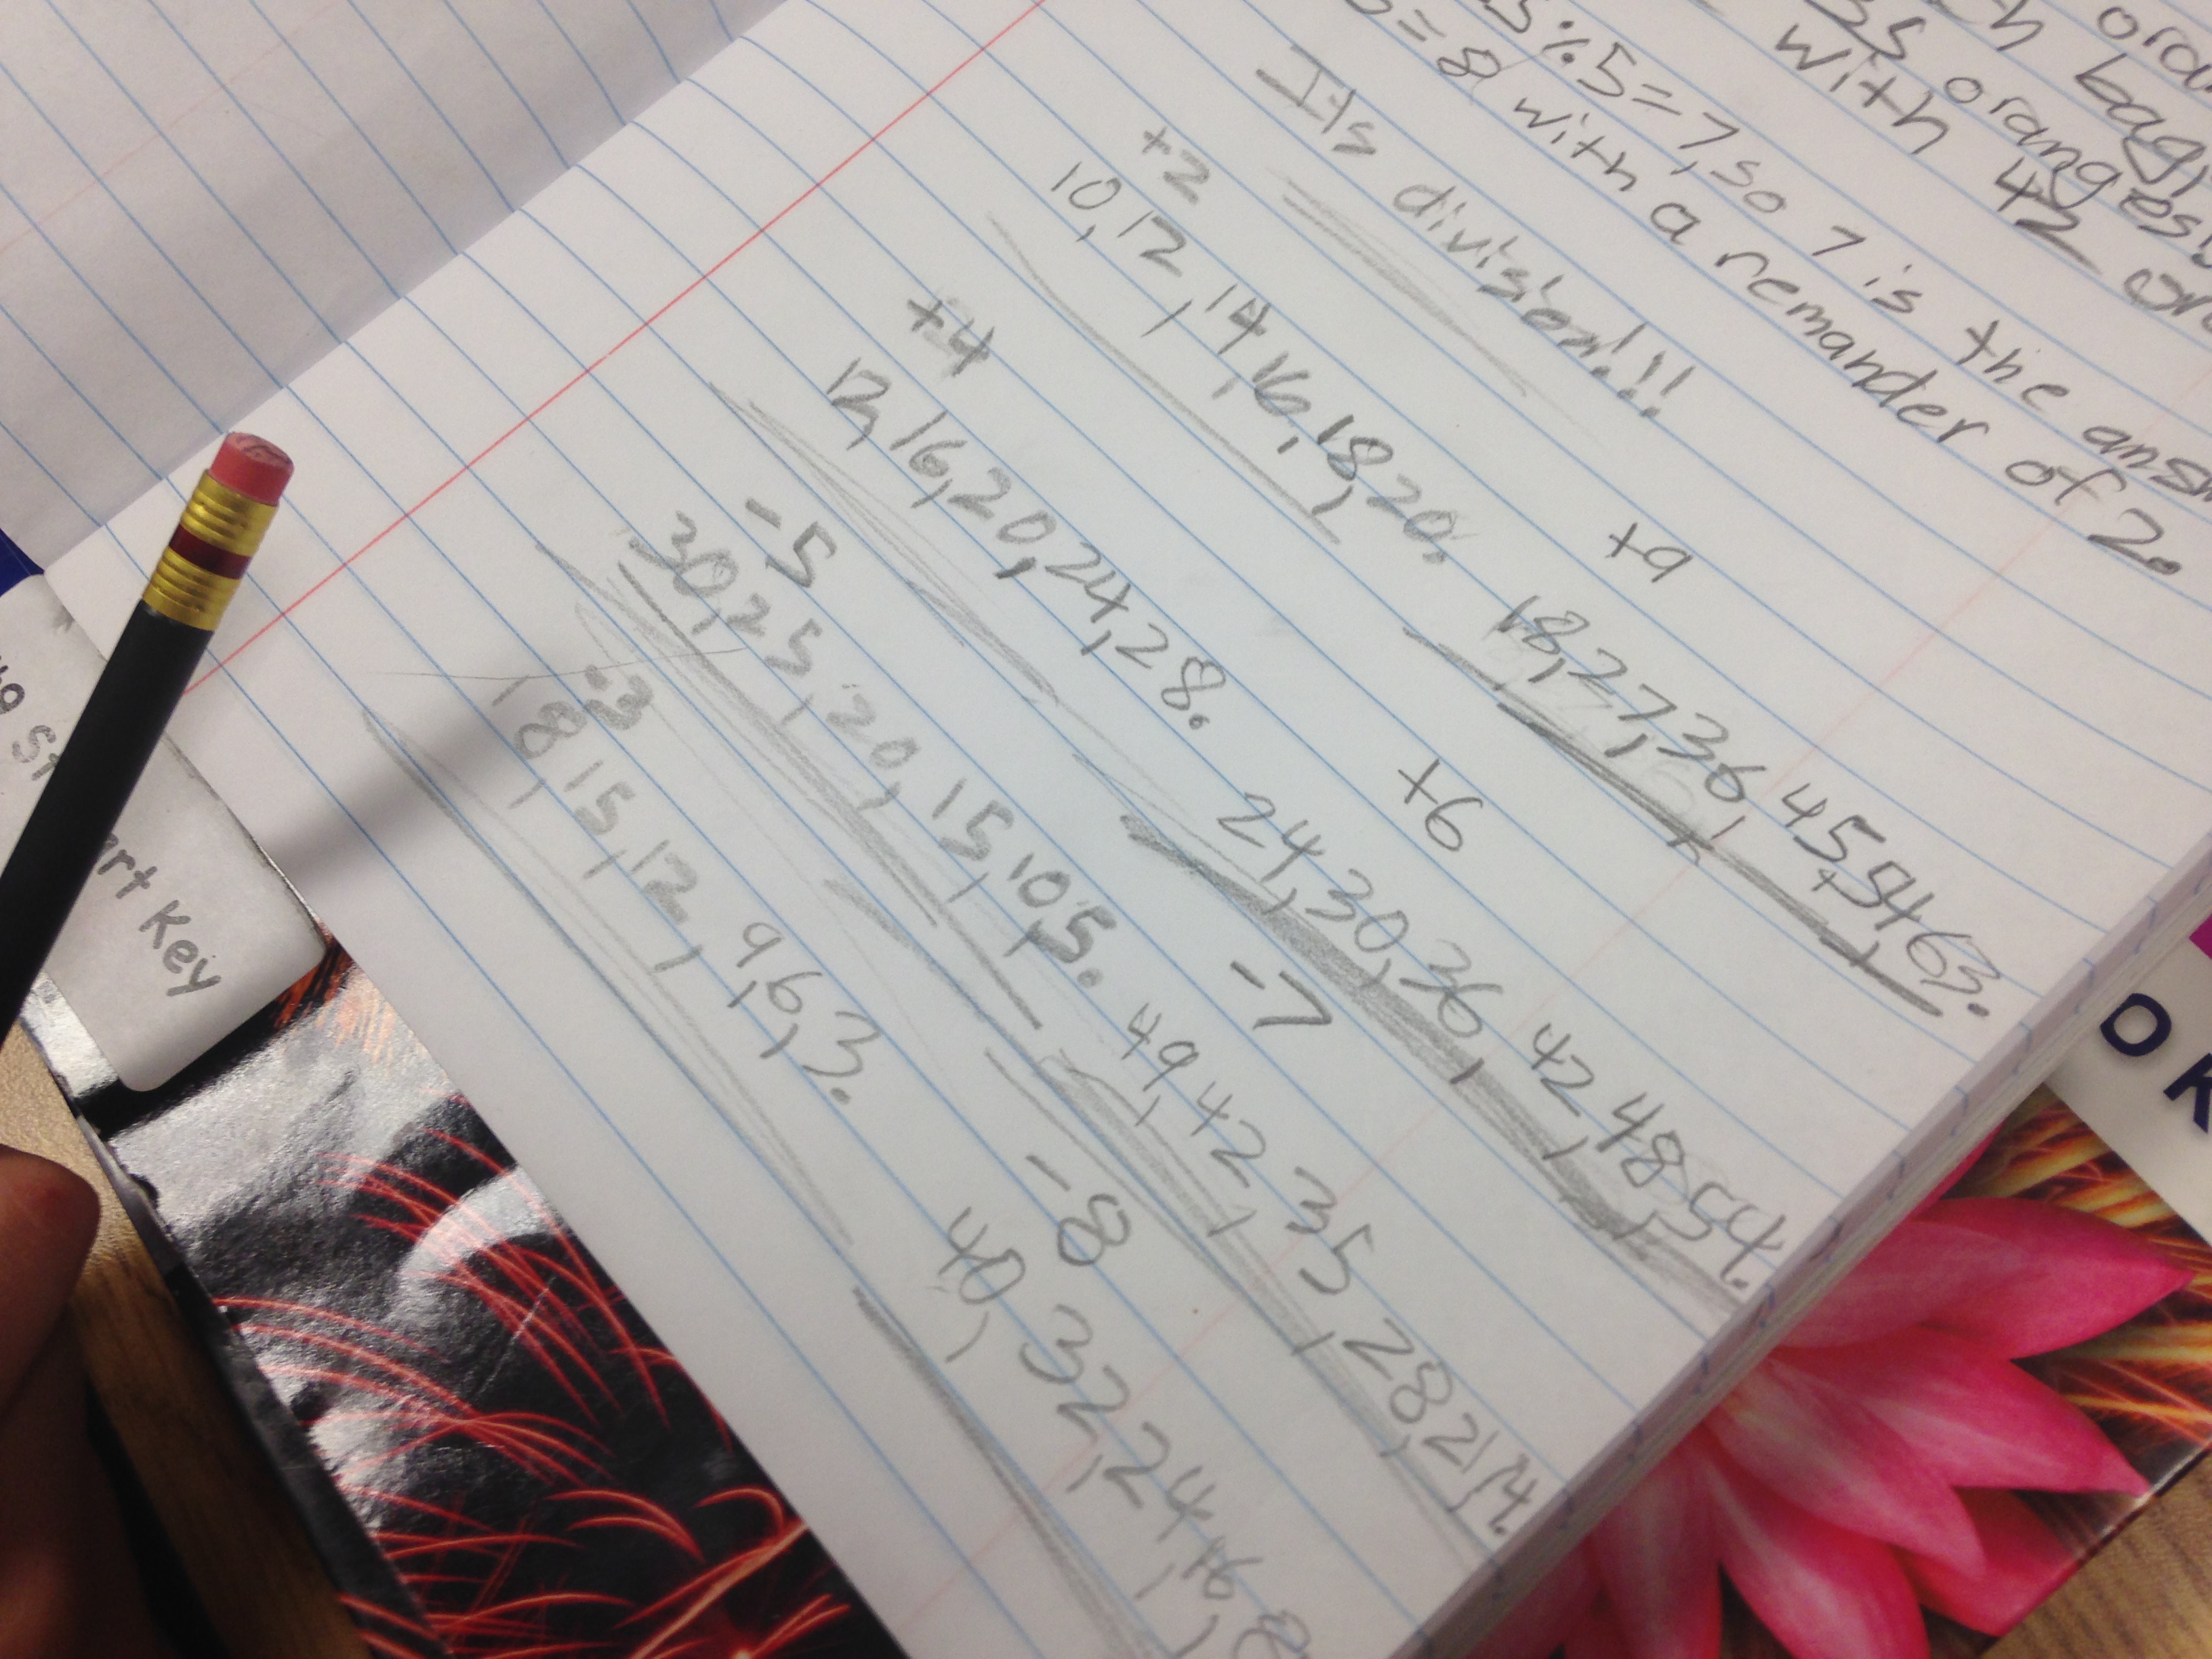 ora
ch bag,
35 oranges!
with 42 or
35÷5=7, so 7 is the answ
=8 with a remander of 2.
Its division!!!
+2
10, 12, 14, 16, 18, 20.
+9
18, 27, 36, 45, 54, 63.
+4
12, 16, 20, 24, 28.
+6
24, 30, 36, 42, 48, 54.
-5
30, 25, 20, 15, 10, 5.
-7
49, 42, 35, 28, 21, 14.
-3
18, 15, 12, 9, 6, 3.
-8
40, 32, 24, 16, 8
art Key
OK